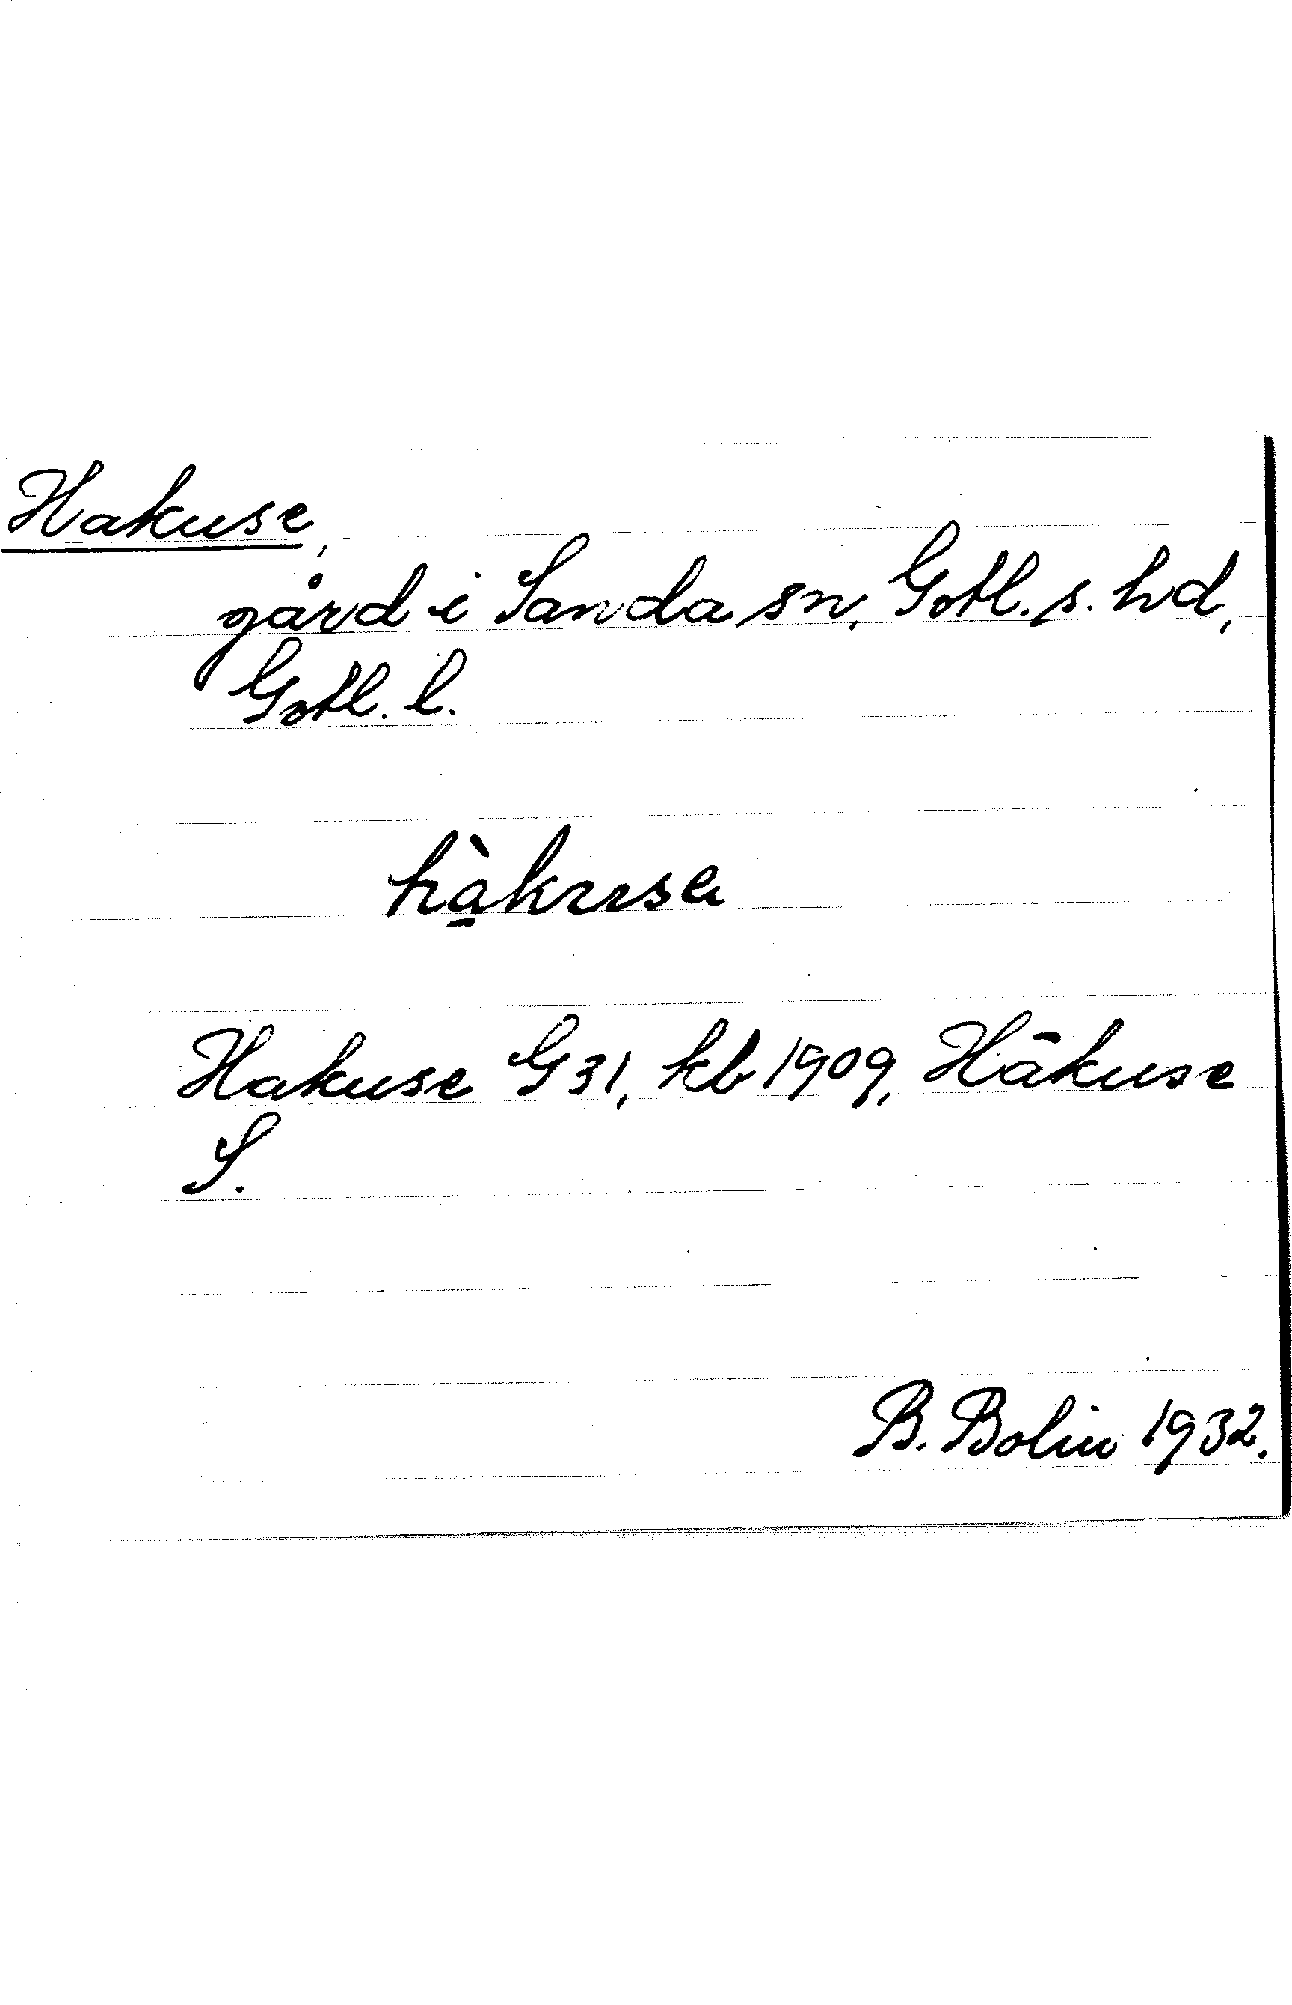 Hakuse,
gård i Sanda sn, Gotl. s. hd,
Gotl. l.
hà̱kusa
Hakuse G 31, kb 1909, Hākuse
S.
B. Bolin 1932.